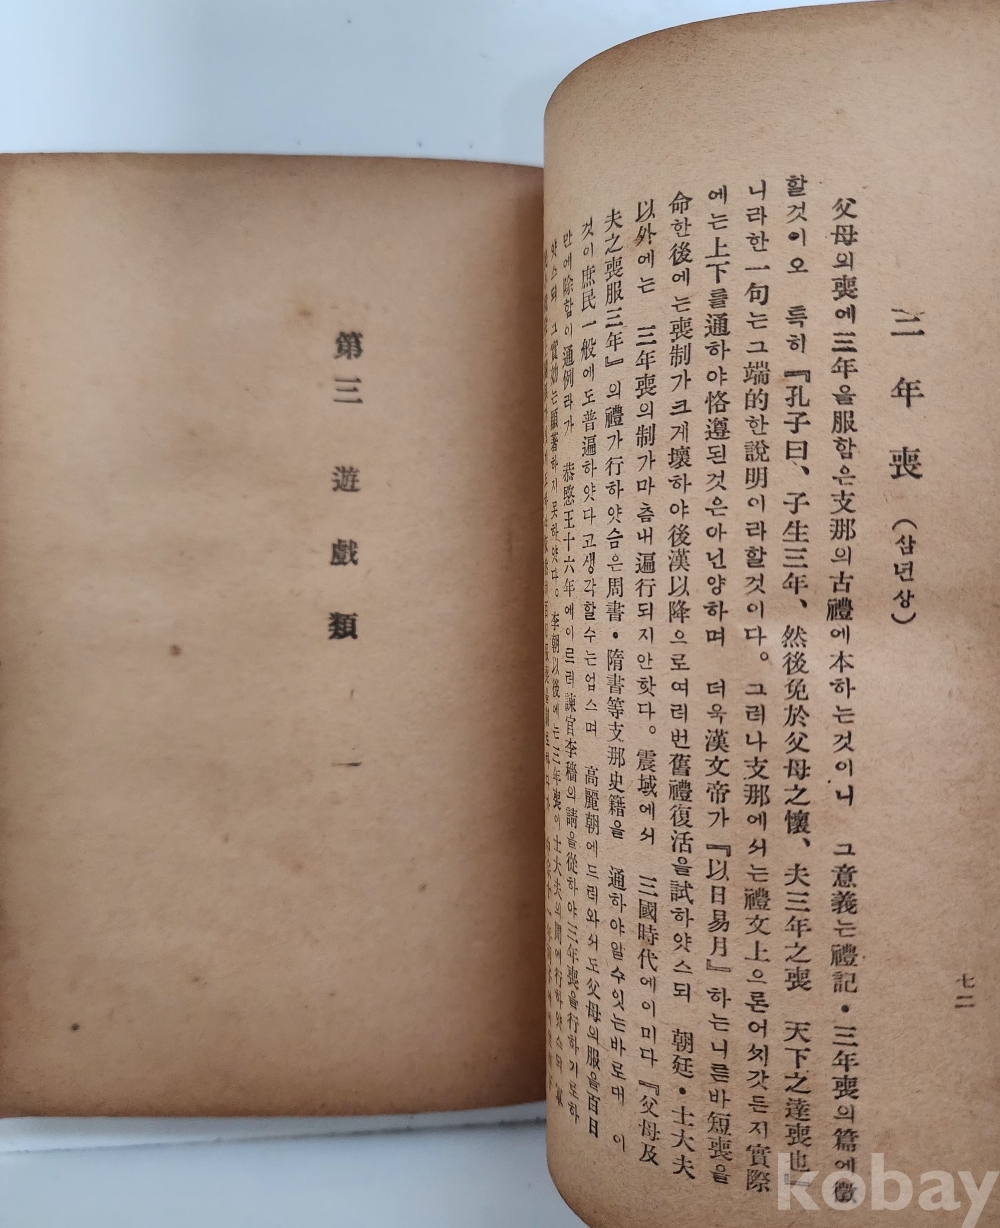 七二
三年喪 (삼년상)
父母의喪에三年을服함은支那의古禮에本하는것이니 그意義는禮記·三年喪의篇에徵
할것이오 특히『孔子曰、子生三年、然後免於父母之懷、夫三年之喪 天下之達喪也』
니라한一句는그端的한說明이라할것이다。그러나支那에서는禮文上으론어찌갓든지實際
에는上下를通하야恪遵된것은아닌양하며 더욱漢文帝가『以日易月』하는니른바短喪을
命한後에는喪制가크게壞하야後漢以降으로여러번舊禮復活을試하얏스되 朝廷·士大夫
以外에는 三年喪의制가마츰내遍行되지안핫다。震域에서 三國時代에이미다『父母及
夫之喪服三年』의禮가行하얏슴은周書·隋書等支那史籍을 通하야알수잇는바로대 이
것이庶民一般에도普遍하얏다고생각할수는업스며 高麗朝에드러와서도父母의服을百日
만에除함이通例라가 恭愍王十六年에이르러諫官李穡의請을從하야三年喪을行하기로하
얏스되 그實効는顯著하지못하얏다。李朝以後에는三年喪이士大夫의間에行하얏스되
第三 遊戲類 一